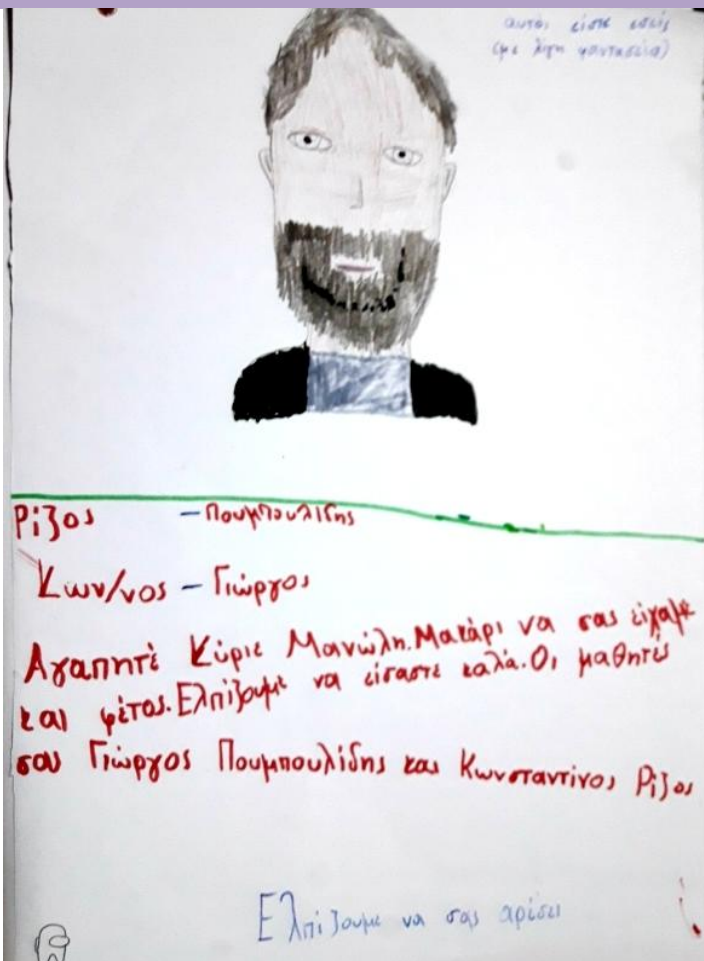 αυτοί είστε εσείς
(με λίγη φαντασεία)
Ρίζος - Πουμπουλίδης
Κων/νος - Γιώργος
Αγαπητέ Κύριε Μανώλη. Μακάρι να σας είχαμε
και φέτος. Ελπίζουμε να είσαστε καλά. Οι μαθητές
σου Γιώργος Πουμπουλίδης και Κωνσταντίνος Ρίζος
Ελπίζουμε να σας αρέσει